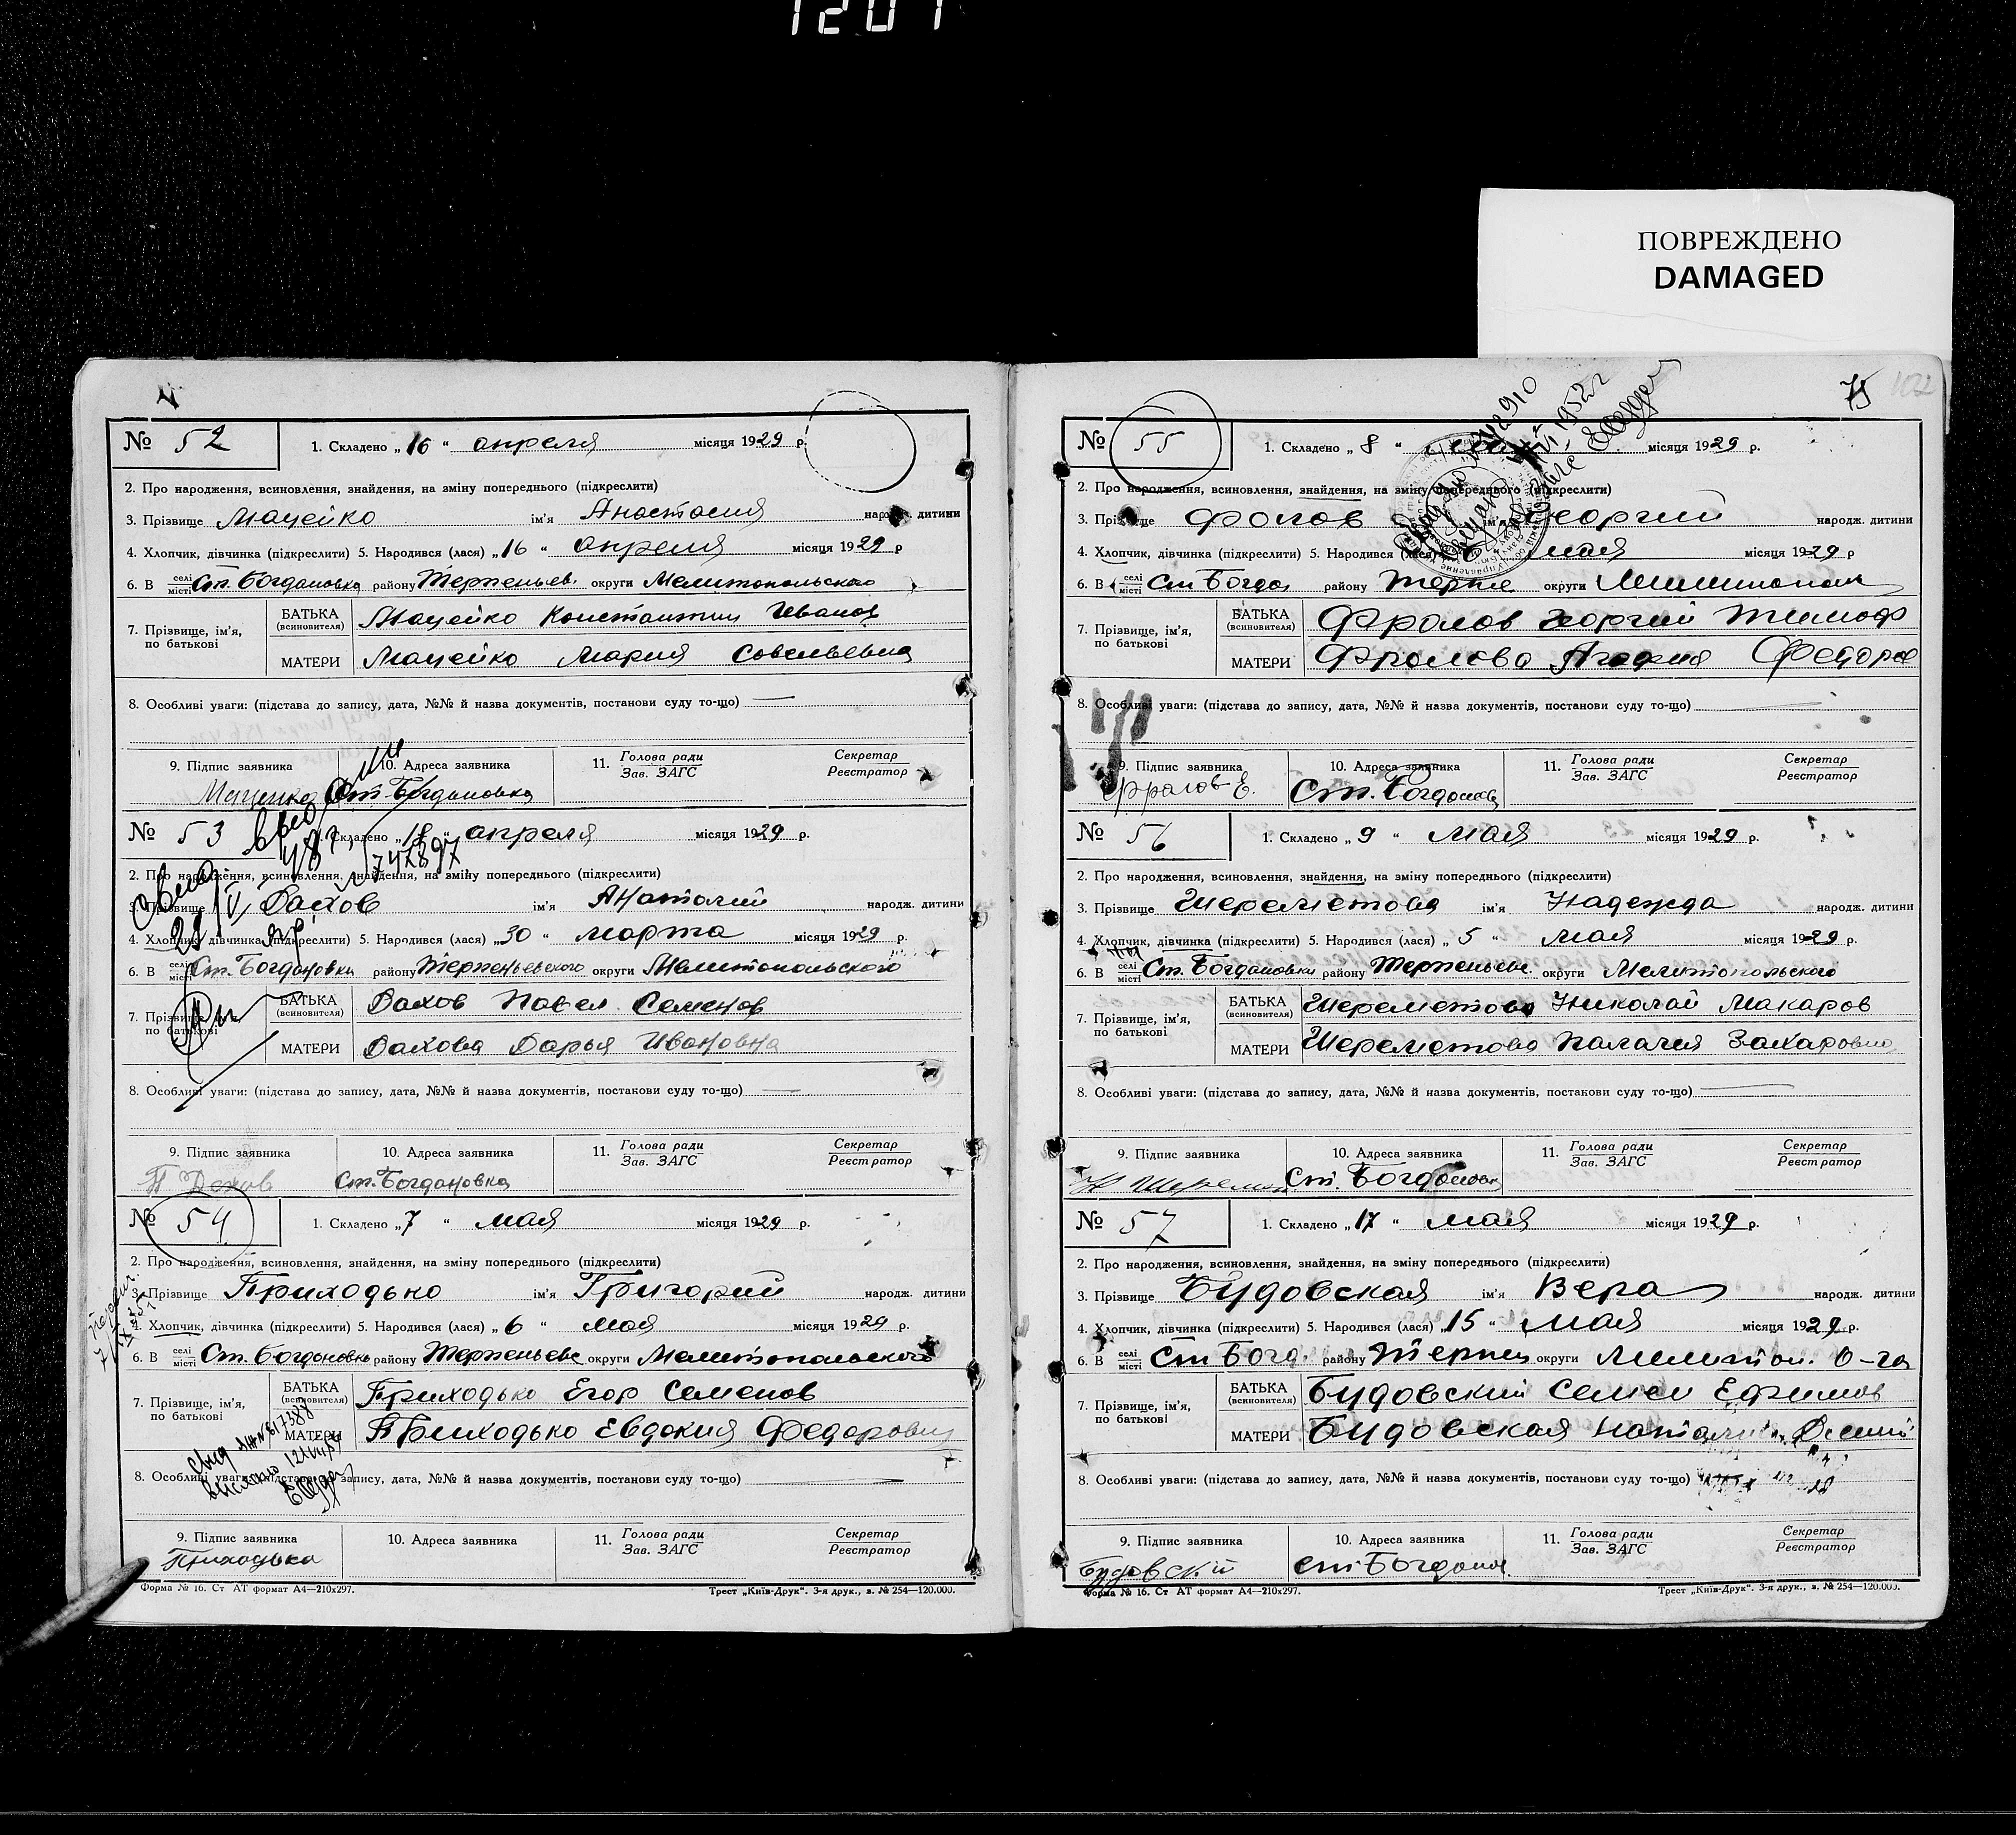 1201
ПОВРЕЖДЕНО
DAMAGED
№ 52 1. Складено „16“ апреля місяця 1929 р.
2. Про народження, всиновлення, знайдення, на зміну попереднього (підкреслити)
3. Прізвище Мацейко ім'я Анастасия народж. дитини
4. Хлопчик, дівчинка (підкреслити) 5. Народився (лася) „16“ апреля місяця 1929 р
6. В селі місті Ст. Богдановка району Терпеньев. округи Мелитопольского
7. Прізвище, ім'я, по батькові БАТЬКА (всиновителя) Мацейко Константин Иванов
МАТЕРИ Мацейко Мария Савельевна
8. Особливі уваги: (підстава до запису, дата, №№ й назва документів, постанови суду то-що) —
9. Підпис заявника 10. Адреса заявника 11. Голова ради Зав. ЗАГС Секретар Реєстратор
Ст. Богдановка
№ 53 1. Складено „18“ апреля місяця 1929 р.
747897
2. Про народження, всиновлення, знайдення, на зміну попереднього (підкреслити)
3. Прізвище Дахов ім'я Анатолий народж. дитини
4. Хлопчик, дівчинка (підкреслити) 5. Народився (лася) „30“ марта місяця 1929 р.
6. В селі місті Ст. Богдановки району Терпеньевского округи Мелитопольского
7. Прізвище, ім'я, по батькові БАТЬКА (всиновителя) Дахов Павел Семенов
МАТЕРИ Дахова Дарья Ивановна
8. Особливі уваги: (підстава до запису, дата, №№ й назва документів, постакови суду то-що) —
9. Підпис заявника 10. Адреса заявника 11. Голова ради Зав. ЗАГС Секретар Реєстратор
П Дахов Ст. Богдановка
№ 54 1. Складено „7“ мая місяця 1929 р.
2. Про народження, всиновлення, знайдення, на зміну попереднього (підкреслити)
3. Прізвище Приходько ім'я Григорий народж. дитини
4. Хлопчик, дівчинка (підкреслити) 5. Народився (лася) „6“ мая місяця 1929 р.
6. В селі місті Ст. Богдановки району Терпеньевс округи Мелитопольского
7. Прізвище, ім'я, по батькові БАТЬКА (всиновителя) Приходько Егор Семенов
МАТЕРИ Приходько Евдокия Федоровны
8. Особливі уваги: (підстава до запису, дата, №№ й назва документів, постанови суду то-що) —
9. Підпис заявника 10. Адреса заявника 11. Голова ради Зав. ЗАГС Секретар Реєстратор
Приходько
Форма № 16. Ст АТ формат А4—210x297. Трест „Київ-Друк“. 3-я друк., з. № 254—120.000.
75
№ 55 1. Складено „8“ місяця 1929 р.
2. Про народження, всиновлення, знайдення, на зміну попереднього (підкреслити)
3. Прізвище Фолов ім'я Георгий народж. дитини
4. Хлопчик, дівчинка (підкреслити) 5. Народився (лася) мая місяця 1929 р
6. В селі місті Ст Богда району Терпе округи
7. Прізвище, ім'я, по батькові БАТЬКА (всиновителя) Фролов Георгий Тимоф
МАТЕРИ Фролова Агафия Федоров
8. Особливі уваги: (підстава до запису, дата, №№ й назва документів, постанови суду то-що)
9. Підпис заявника 10. Адреса заявника 11. Голова ради Зав. ЗАГС Секретар Реєстратор
Фролов Е. Ст. Богдановк
№ 56 1. Складено „9“ мая місяця 1929 р.
2. Про народження, всиновлення, знайдення, на зміну попереднього (підкреслити)
3. Прізвище Шереметова ім'я Надежда народж. дитини
4. Хлопчик, дівчинка (підкреслити) 5. Народився (лася) „5“ мая місяця 1929 р.
6. В селі місті Ст. Богдановки району Терпеньевс округи Мелитопольского
7. Прізвище, ім'я, по батькові БАТЬКА (всиновителя) Шереметово Николай Макаров
МАТЕРИ Шереметова Палагея Захаровна
8. Особливі уваги: (підстава до запису, дата, №№ й назва документів, постакови суду то-що)
9. Підпис заявника 10. Адреса заявника 11. Голова ради Зав. ЗАГС Секретар Реєстратор
Ст. Богдановк
№ 57 1. Складено „17“ мая місяця 1929 р.
2. Про народження, всиновлення, знайдення, на зміну попереднього (підкреслити)
3. Прізвище Будовская ім'я Вера народж. дитини
4. Хлопчик, дівчинка (підкреслити) 5. Народився (лася) „15“ мая місяця 1929 р.
6. В селі місті Ст Богд. району Терпен округи Мелитоп. О-га
7. Прізвище, ім'я, по батькові БАТЬКА (всиновителя) Будовский Семен Ефимов
МАТЕРИ Будовская
8. Особливі уваги: (підстава до запису, дата, №№ й назва документів, постанови суду то-що)
9. Підпис заявника 10. Адреса заявника 11. Голова ради Зав. ЗАГС Секретар Реєстратор
Будовский ст Богданов
Форма № 16. Ст АТ формат А4—210x297. Трест „Київ-Друк“. 3-я друк., з. № 254—120.000.